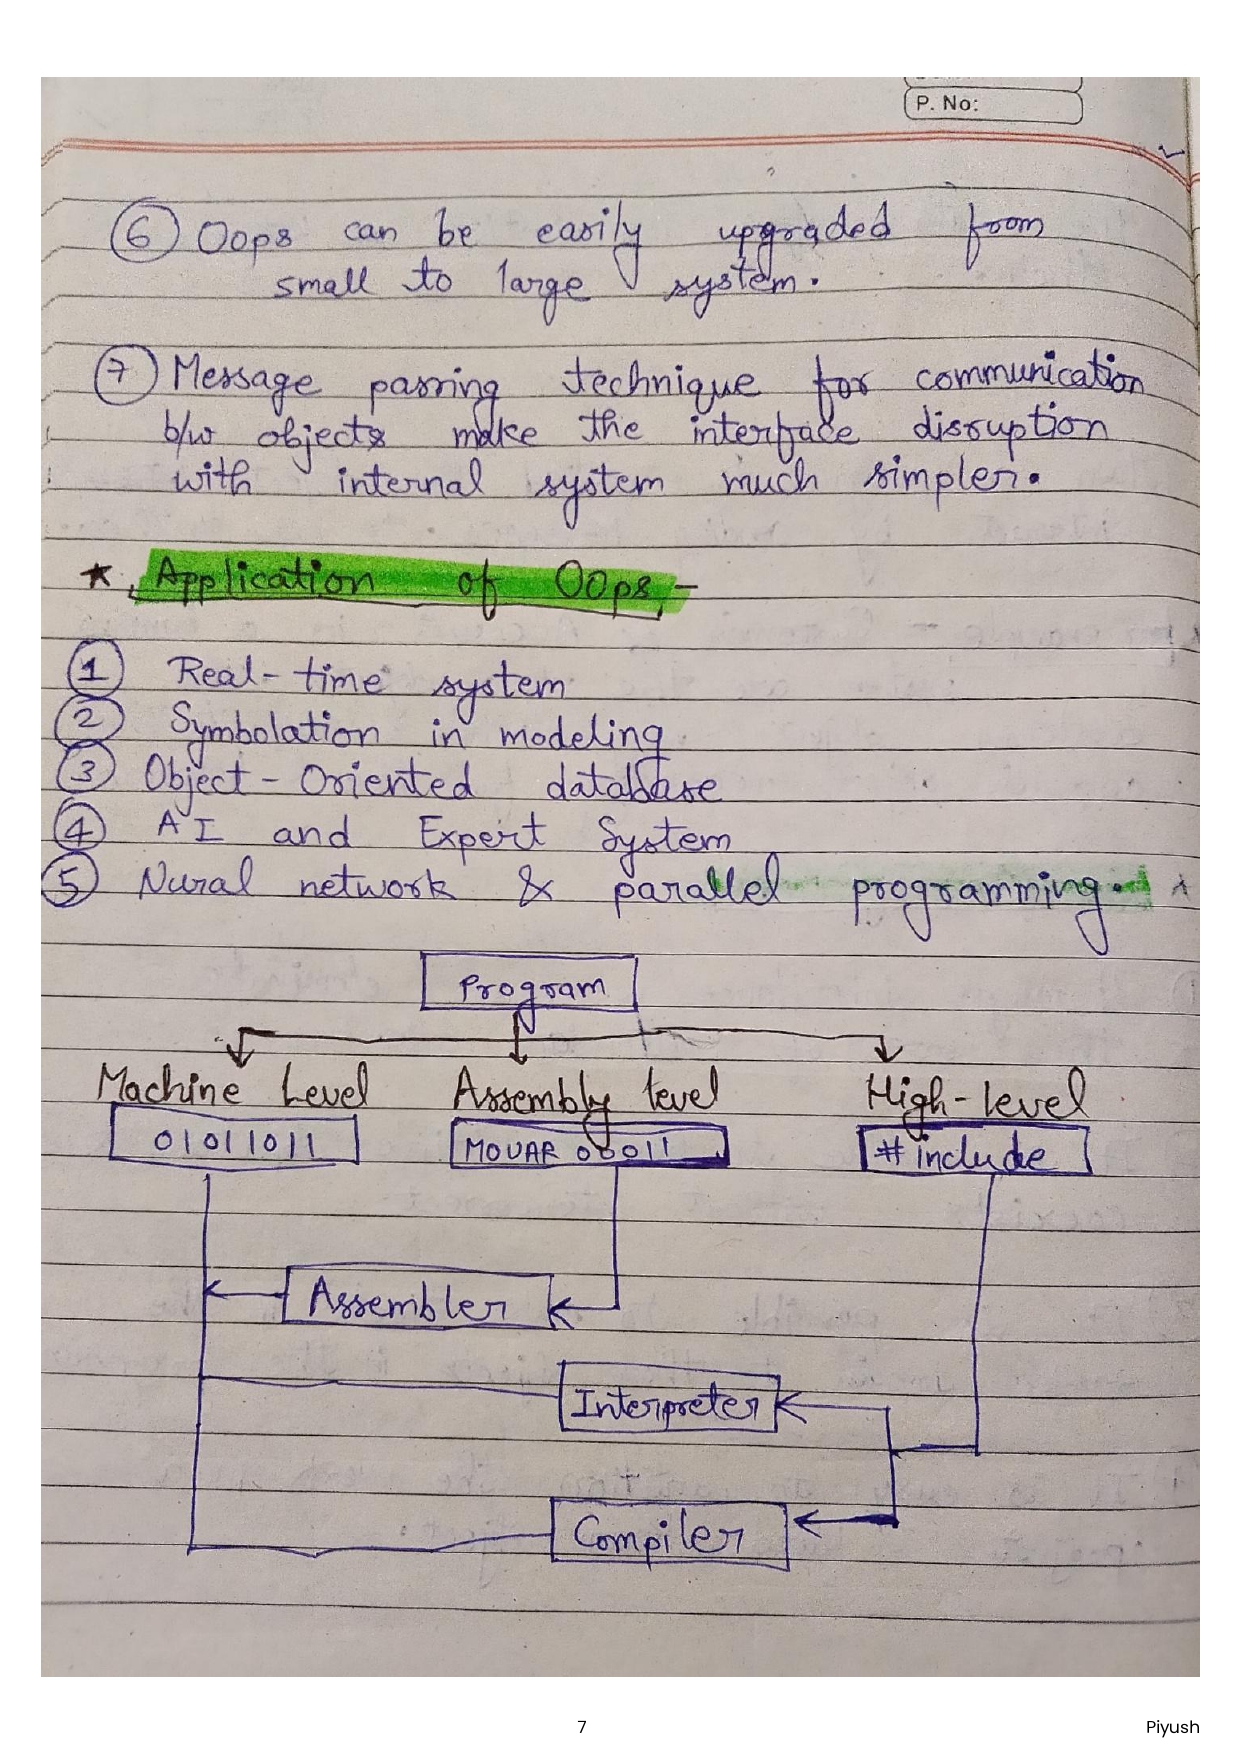 P. No:
6 Oops can be easily upgraded from
small to large system.
7 Message passing technique for communication
b/w objects make the interface disruption
with internal system much simpler.
* Application of OOps,-
1 Real-time system
2 Symbolation in modeling
3 Object-Oriented database
4 AI and Expert System
5 Nural network & parallel programming.
Program
Machine Level Assembly level High-level
01011011 MOVAR 00011 #include
Assembler
Interpreter
Compiler
7 Piyush